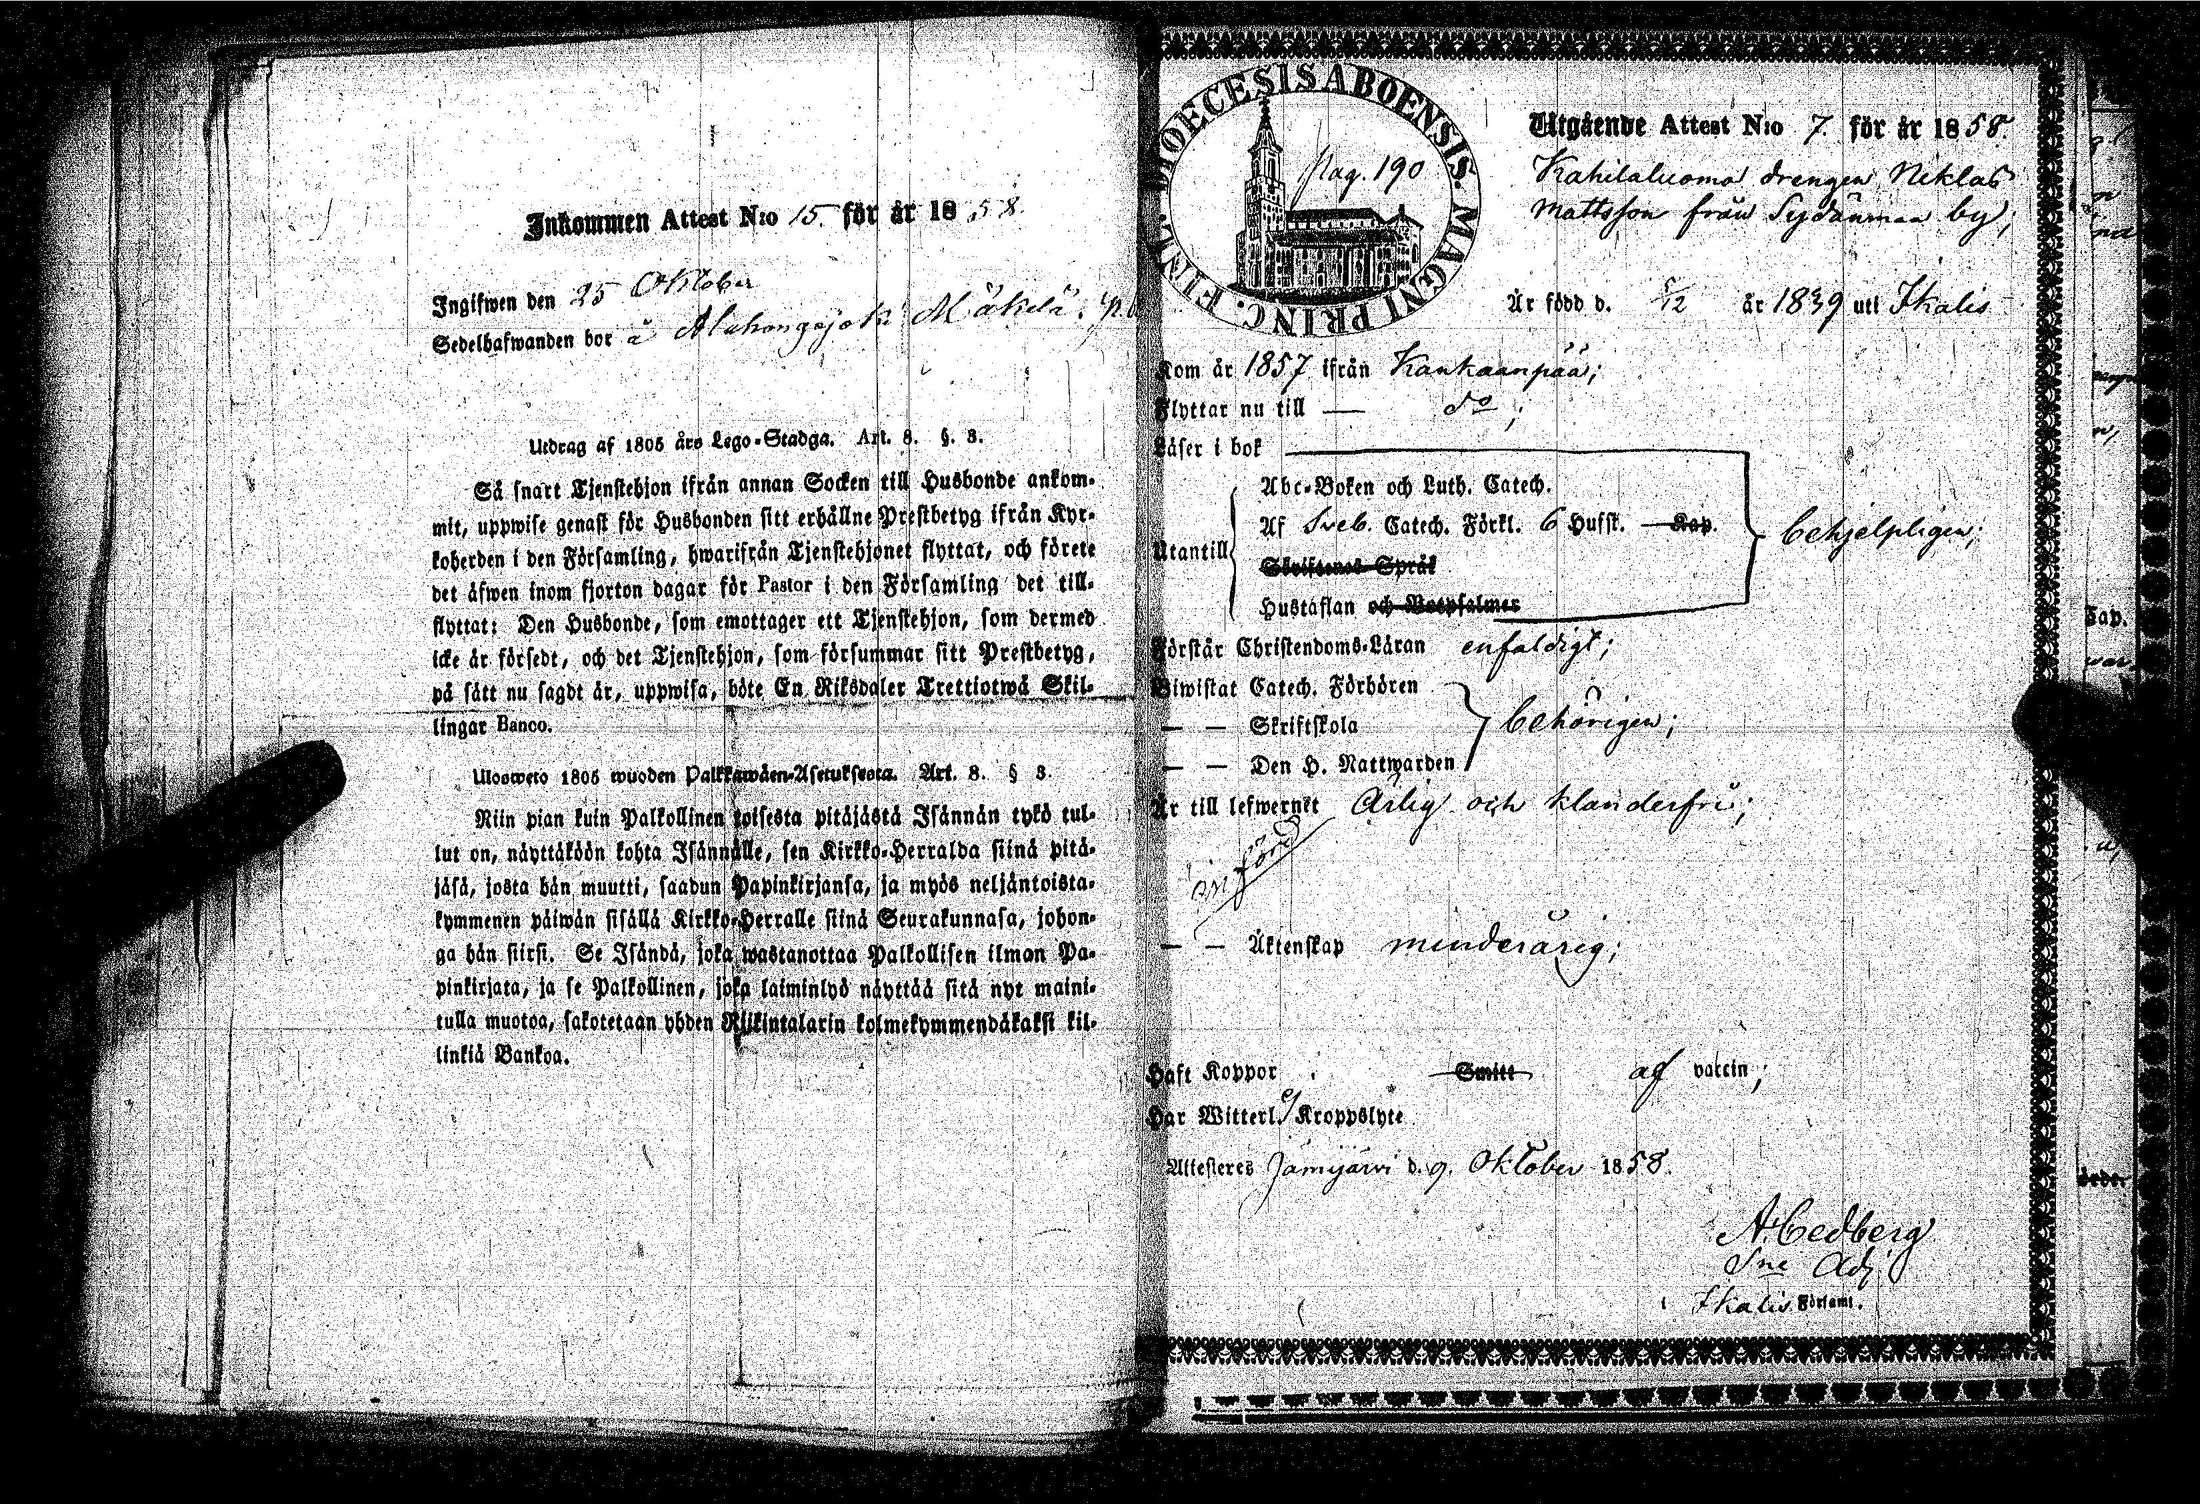 Inkommen Attest N:o 15. för år 1858.
Ingifwen den 25 Oktober
Sedelhafwanden bor å Alahongojoki Mäkelä.
Utdrag af 1805 års Lego-Stadga. Art. 8. §. 3.
Så snart Tjenstehjon ifrån annan Socken till Husbonde ankom-
mit, uppwise genast för Husbonden sitt erhållne Prestbetyg ifrån Kyr-
koherden i den Församling, hwarifrån Tjenstehjonet flyttat, och förete
det äfwen inom fjorton dagar för Pastor i den Församling det till-
flyttat: Den Husbonde, som emottager ett Tjenstehjon, som dermed
icke är försedt, och det Tjenstehjon, som försummar sitt Prestbetyg,
på sätt nu sagdt är, uppwisa, böte En Riksdaler Trettiotwå Skil-
lingar Banco.
Ulosweto 1805 wuoden Palkkawäen-Asetuksesta. Art. 8. § 3.
Niin pian kuin Palkollinen toisesta pitäjästä Isännän tykö tul-
lut on, näyttäköön kohta Isännälle, sen Kirkko-Herralda siinä pitä-
jäsä, josta hän muutti, saadun Papinkirjansa, ja myös neljäntoista-
kymmenen päiwän sisällä Kirkko-Herralle siinä Seurakunnasa, johon-
ga hän siirsi. Se Isändä, joka wastanottaa Palkollisen ilman Pa-
pinkirjata, ja se Palkollinen, joka laiminlyö näyttää sitä nyt maini-
tulla muotoa, sakotetaan yhden Riikintalarin kolmekymmendäkaksi kil-
linkiä Bankoa.
DIOECESIS ABOENSIS. MAGNI PRINC. FINL.
Pag. 190
Utgående Attest N:o 7. för år 1858.
Kahilaluoma drengen Niklas
Mattsson från Sydänmaa by;
Är född d. 5/12 år 1839 uti Ikalis
Kom år 1857 ifrån Kankaanpää;
Flyttar nu till — do;
Läser i bok
Abc-Boken och Luth. Catech.
Af Sveb. Catech. Förkl. 6 Hufst. Kap.
Utantill behjelpligen;
Skriftenes Språk
Hustaflan och Botpsalmer
Förstår Christendoms-Läran enfaldigt;
Biwistat Catech. Förhören
— — Skriftskola behörigen;
— — Den H. Nattwarden
Är till lefwernet Ärlig och klanderfri;
införd
— — Äktenskap minderårig;
Haft Koppor Smitt af vaccin;
Har Witterl. ej Kroppslyte
Attesteres Jämijärvi d. 9. Oktober 1858.
A. Cedberg
Sne Adj.
i Ikalis Församl.